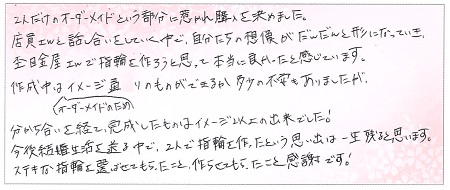 2人だけのオーダーメイドという部分に惹かれ購入を決めました。
店員さんと話し合いをしていく中で、自分たちの想像がだんだんと形になっていき、
杢目金屋さんで指輪を作ろうと思って本当に良かったと感じています。
作成中はイメージ通りのものができるか多少の不安もありましたが、
(オーダーメイドのため)
分かち合いを経て、完成したものはイメージ以上の出来でした!
今後結婚生活を送る中で、2人で指輪を作ったという思い出は一生残ると思います。
ステキな指輪を選ばせてもらったこと、作らせてもらったこと感謝です!